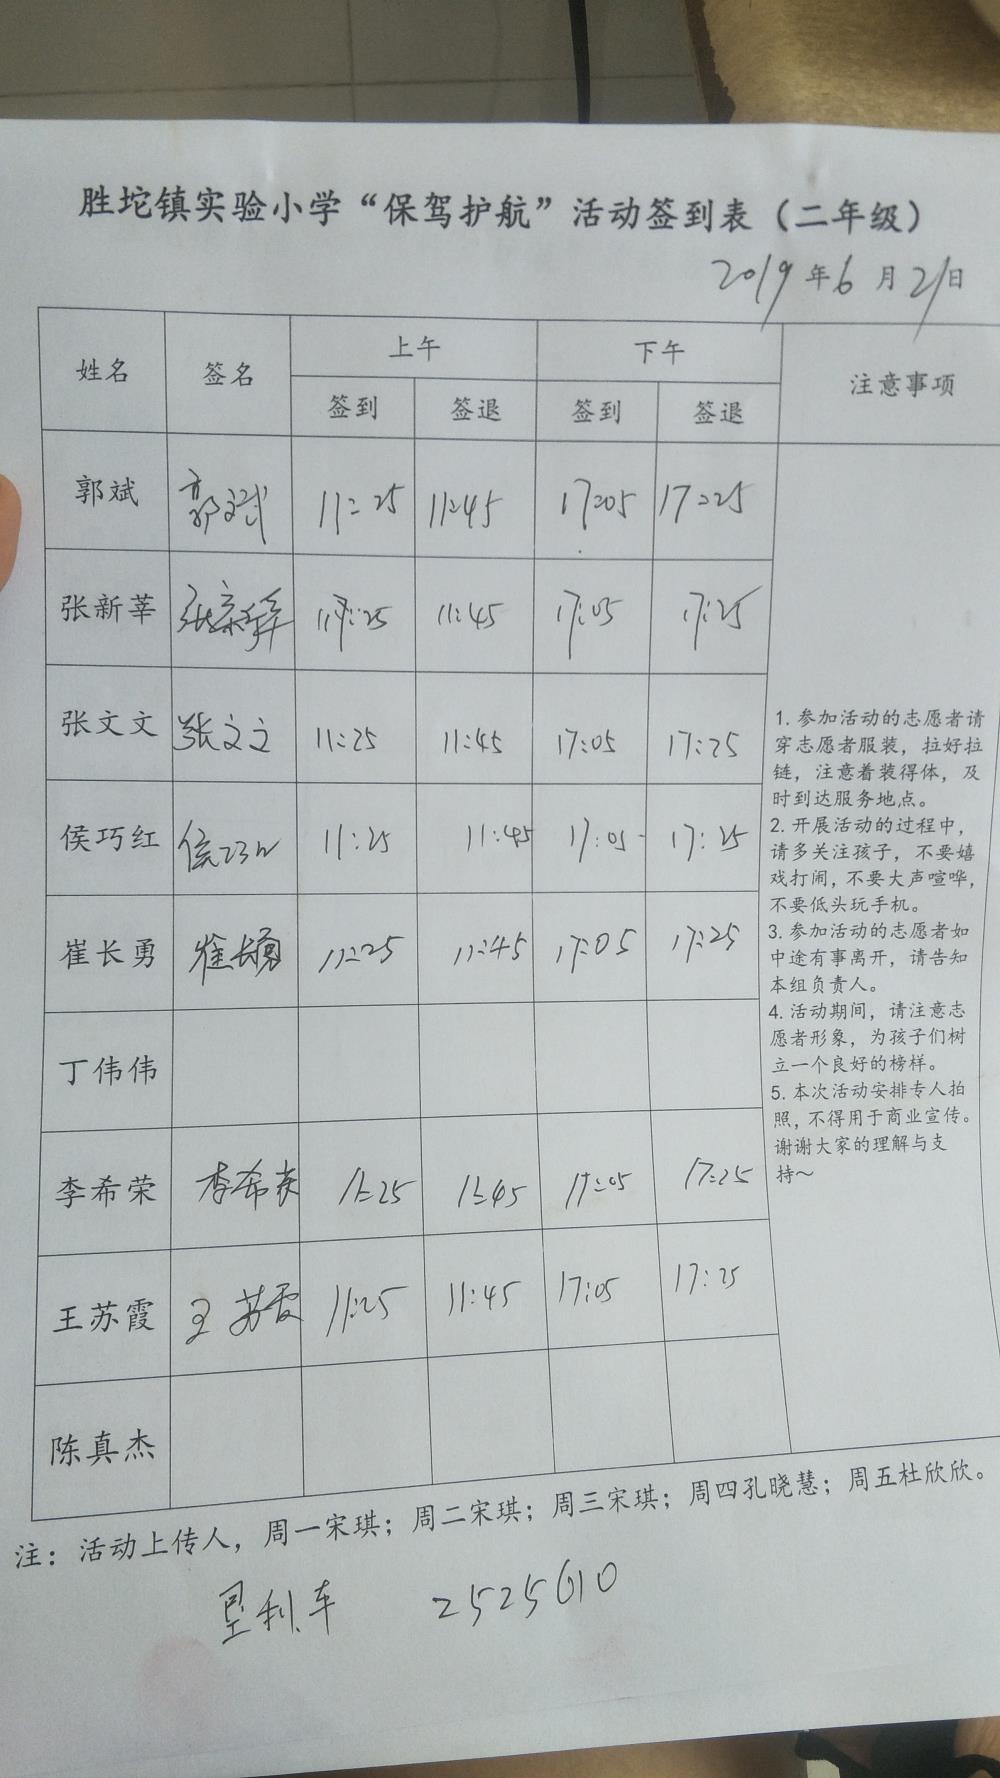 胜坨镇实验小学“保驾护航”活动签到表（二年级）
2019年6月21日
姓名 签名 上午 下午 注意事项
签到 签退 签到 签退
郭斌 郭斌 11:25 11:45 17:05 17:25
张新莘 张新莘 11:25 11:45 17:05 17:25
张文文 张文文 11:25 11:45 17:05 17:25
侯巧红 侯巧红 11:25 11:45 17:05 17:25
崔长勇 崔长勇 11:25 11:45 17:05 17:25
丁伟伟
李希荣 李希荣 11:25 11:45 17:05 17:25
王苏霞 王苏霞 11:25 11:45 17:05 17:25
陈真杰
1. 参加活动的志愿者请
穿志愿者服装，拉好拉
链，注意着装得体，及
时到达服务地点。
2. 开展活动的过程中，
请多关注孩子，不要嬉
戏打闹，不要大声喧哗，
不要低头玩手机。
3. 参加活动的志愿者如
中途有事离开，请告知
本组负责人。
4. 活动期间，请注意志
愿者形象，为孩子们树
立一个良好的榜样。
5. 本次活动安排专人拍
照，不得用于商业宣传。
谢谢大家的理解与支
持～
注：活动上传人，周一宋琪；周二宋琪；周三宋琪；周四孔晓慧；周五杜欣欣。
垦利车 2525610